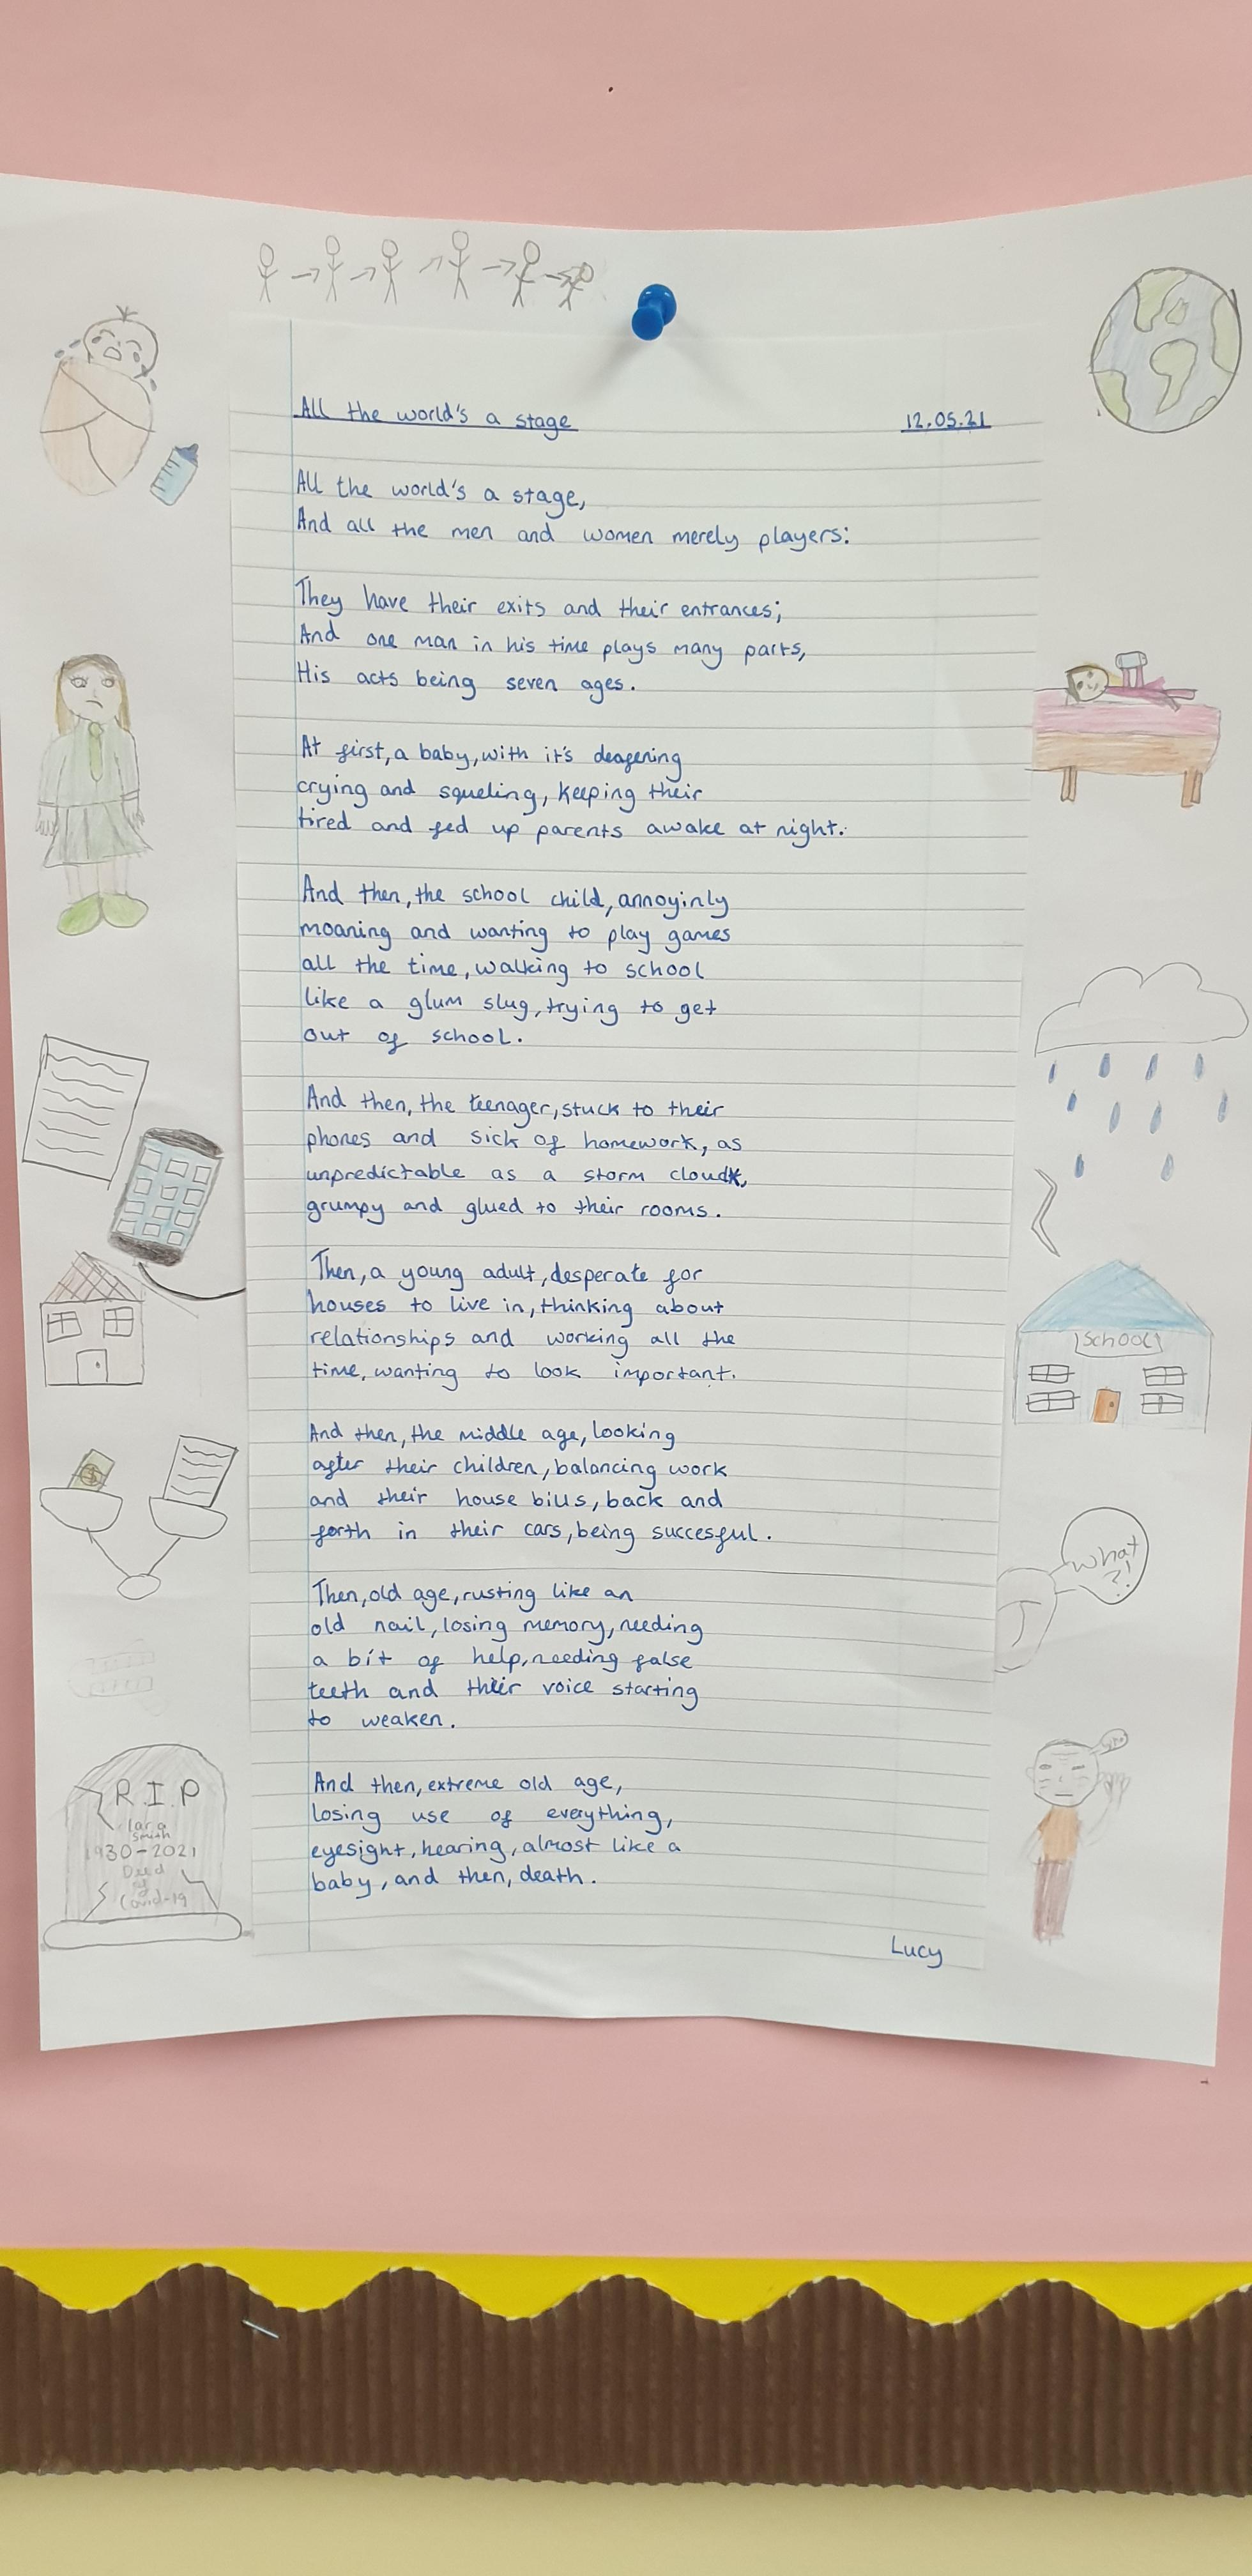 All the world's a stage
12.05.21
All the world's a stage,
And all the men and women merely players:
They have their exits and their entrances;
And one man in his time plays many parts,
His acts being seven ages.
At first, a baby, with it's deafening
crying and squeling, keeping their
tired and fed up parents awake at night.
And then, the school child, annoyinly
moaning and wanting to play games
all the time, walking to school
like a glum slug, trying to get
out of school.
And then, the teenager, stuck to their
phones and sick of homework, as
unpredictable as a storm cloud,
grumpy and glued to their rooms.
Then, a young adult, desperate for
houses to live in, thinking about
relationships and working all the
time, wanting to look important.
School
And then, the middle age, looking
after their children, balancing work
and their house bills, back and
forth in their cars, being succesful.
$
What
?!
Then, old age, rusting like an
old nail, losing memory, needing
a bit of help, needing false
teeth and their voice starting
to weaken.
And then, extreme old age,
losing use of everything,
eyesight, hearing, almost like a
baby, and then, death.
R.I.P
Smith
1930-2021
Died
of
Covid-19
Lucy